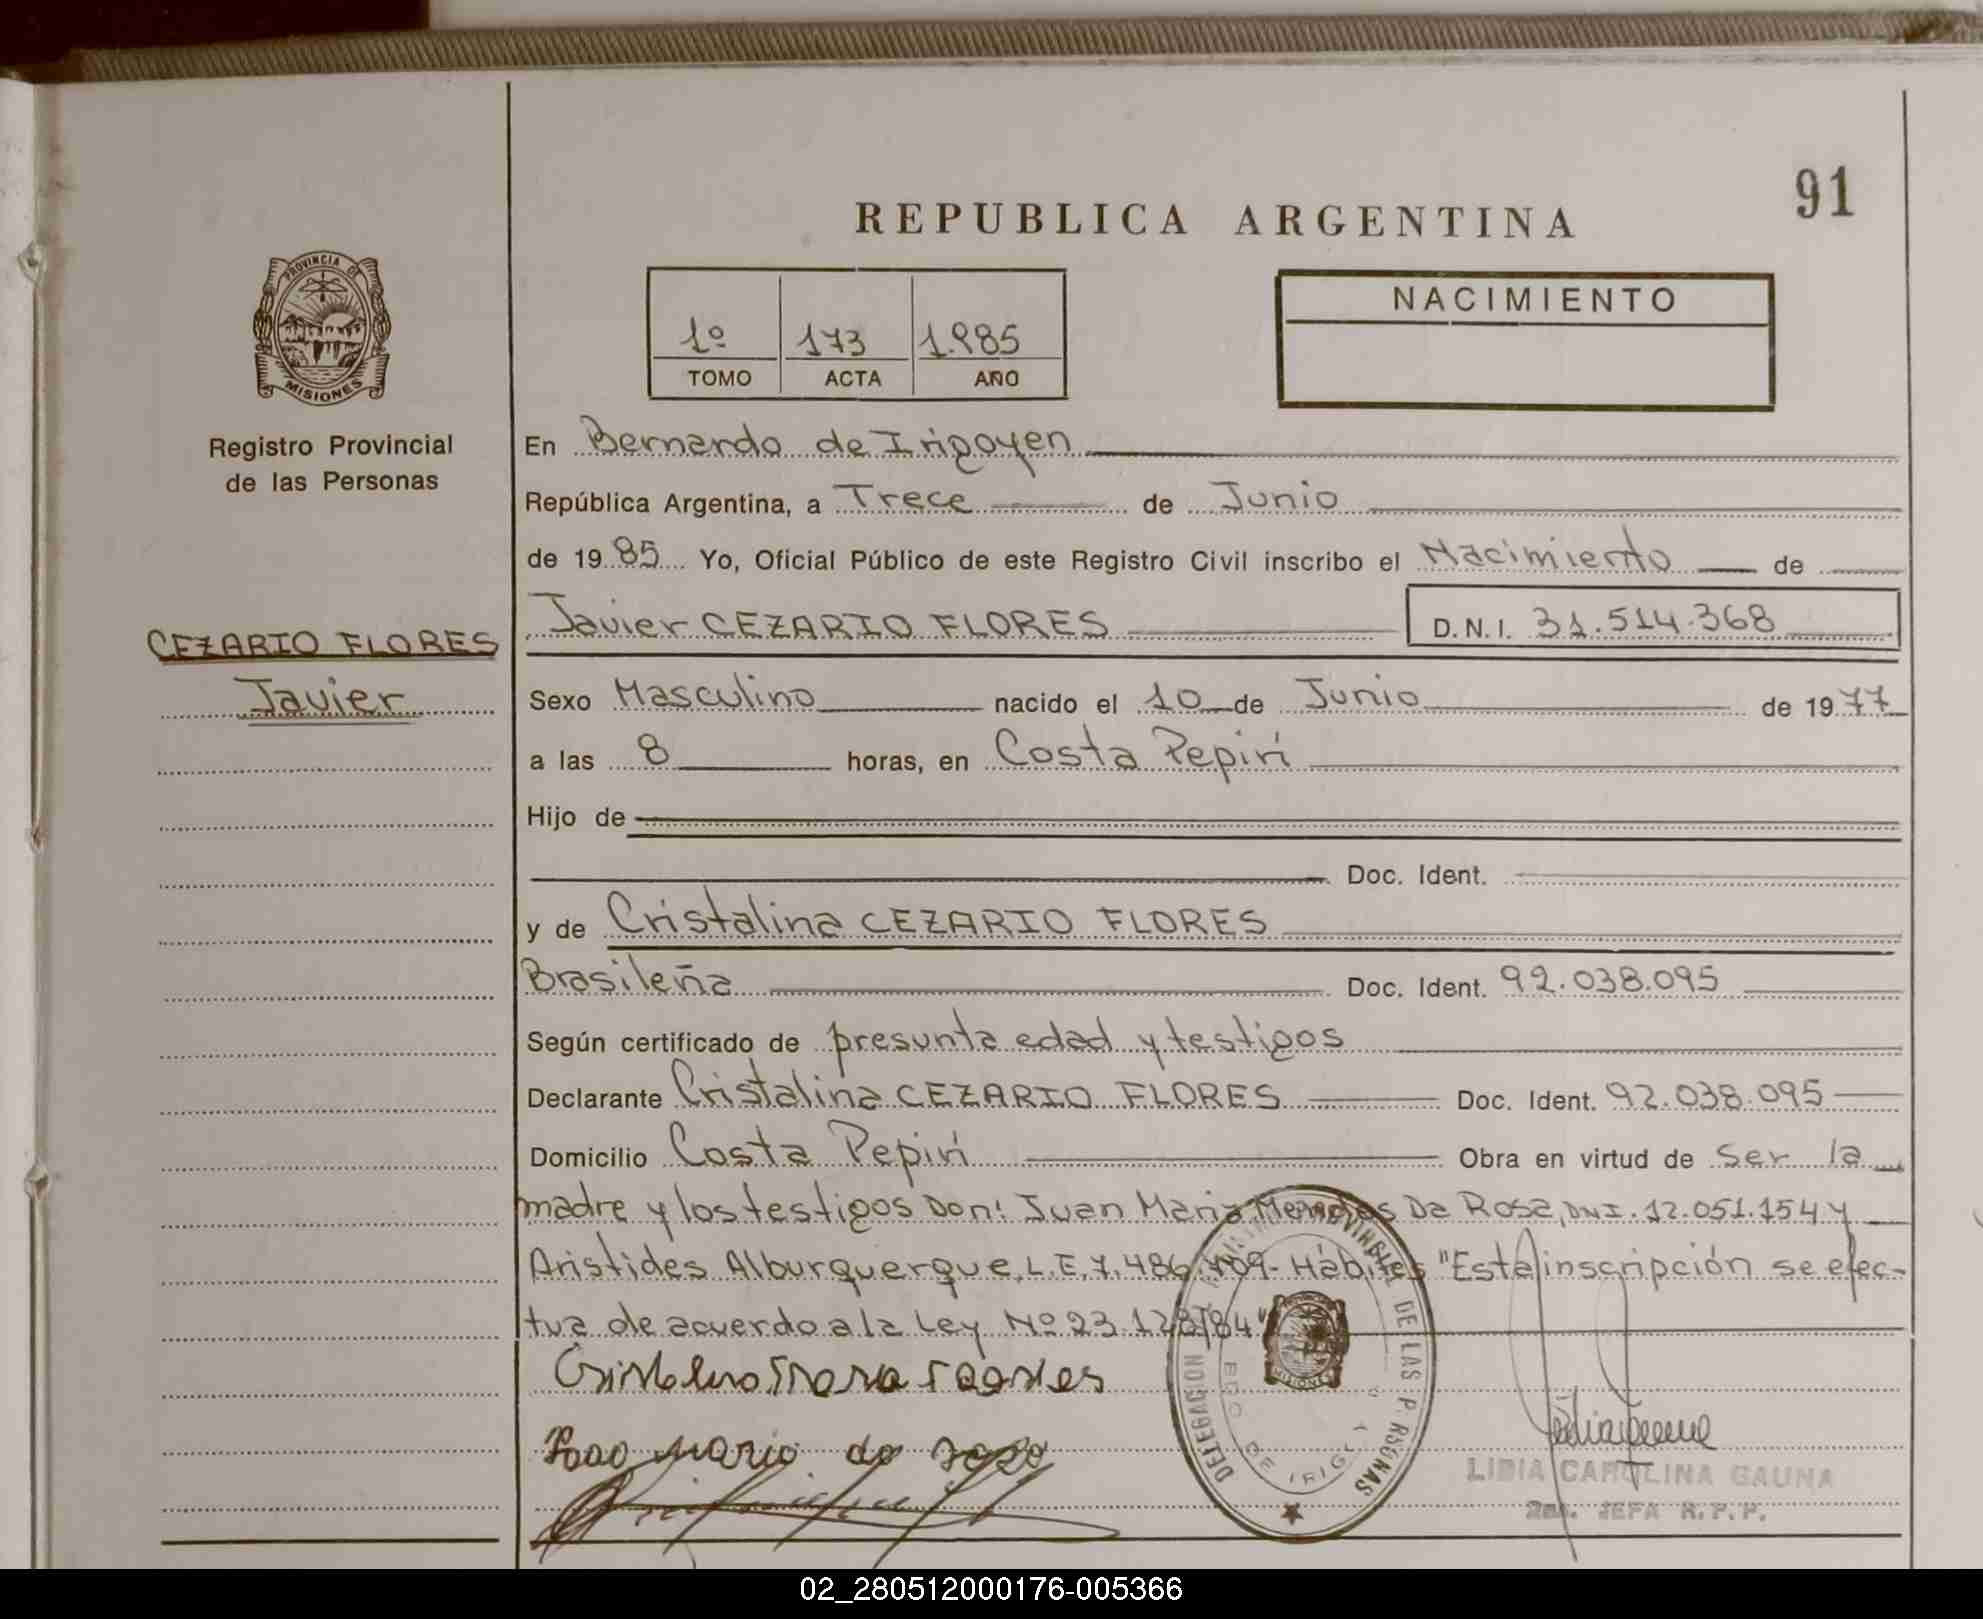 91
REPUBLICA ARGENTINA
PROVINCIA DE
MISIONES
Registro Provincial
de las Personas
1º 173 1.985
TOMO ACTA AÑO
NACIMIENTO
En Bernardo de Irigoyen
República Argentina, a Trece de Junio
de 19 85 Yo, Oficial Público de este Registro Civil inscribo el Nacimiento de
CEZARIO FLORES
Javier
Javier CEZARIO FLORES D.N.I. 31.514.368
Sexo Masculino nacido el 10 de Junio de 19 77
a las 8 horas, en Costa Pepirí
Hijo de
Doc. Ident.
y de Cristalina CEZARIO FLORES
Brasileña Doc. Ident. 92.038.095
Según certificado de presunta edad y testigos
Declarante Cristalina CEZARIO FLORES Doc. Ident. 92.038.095
Domicilio Costa Pepirí Obra en virtud de Ser la
madre y los testigos Don: Juan Maria Mendes Da Rosa, DNI. 12.051.154 y
Aristides Alburquerque, L.E. 7.486.709- Hábiles "Esta inscripción se efec-
tua de acuerdo a la Ley Nº 23.128/84"
DELEGACION PROVINCIAL DE LAS P RSONAS
BDO DE IRIGOY
MISIONES
LIDIA CAROLINA GAUNA
2da. JEFA R.P.P.
02_280512000176-005366